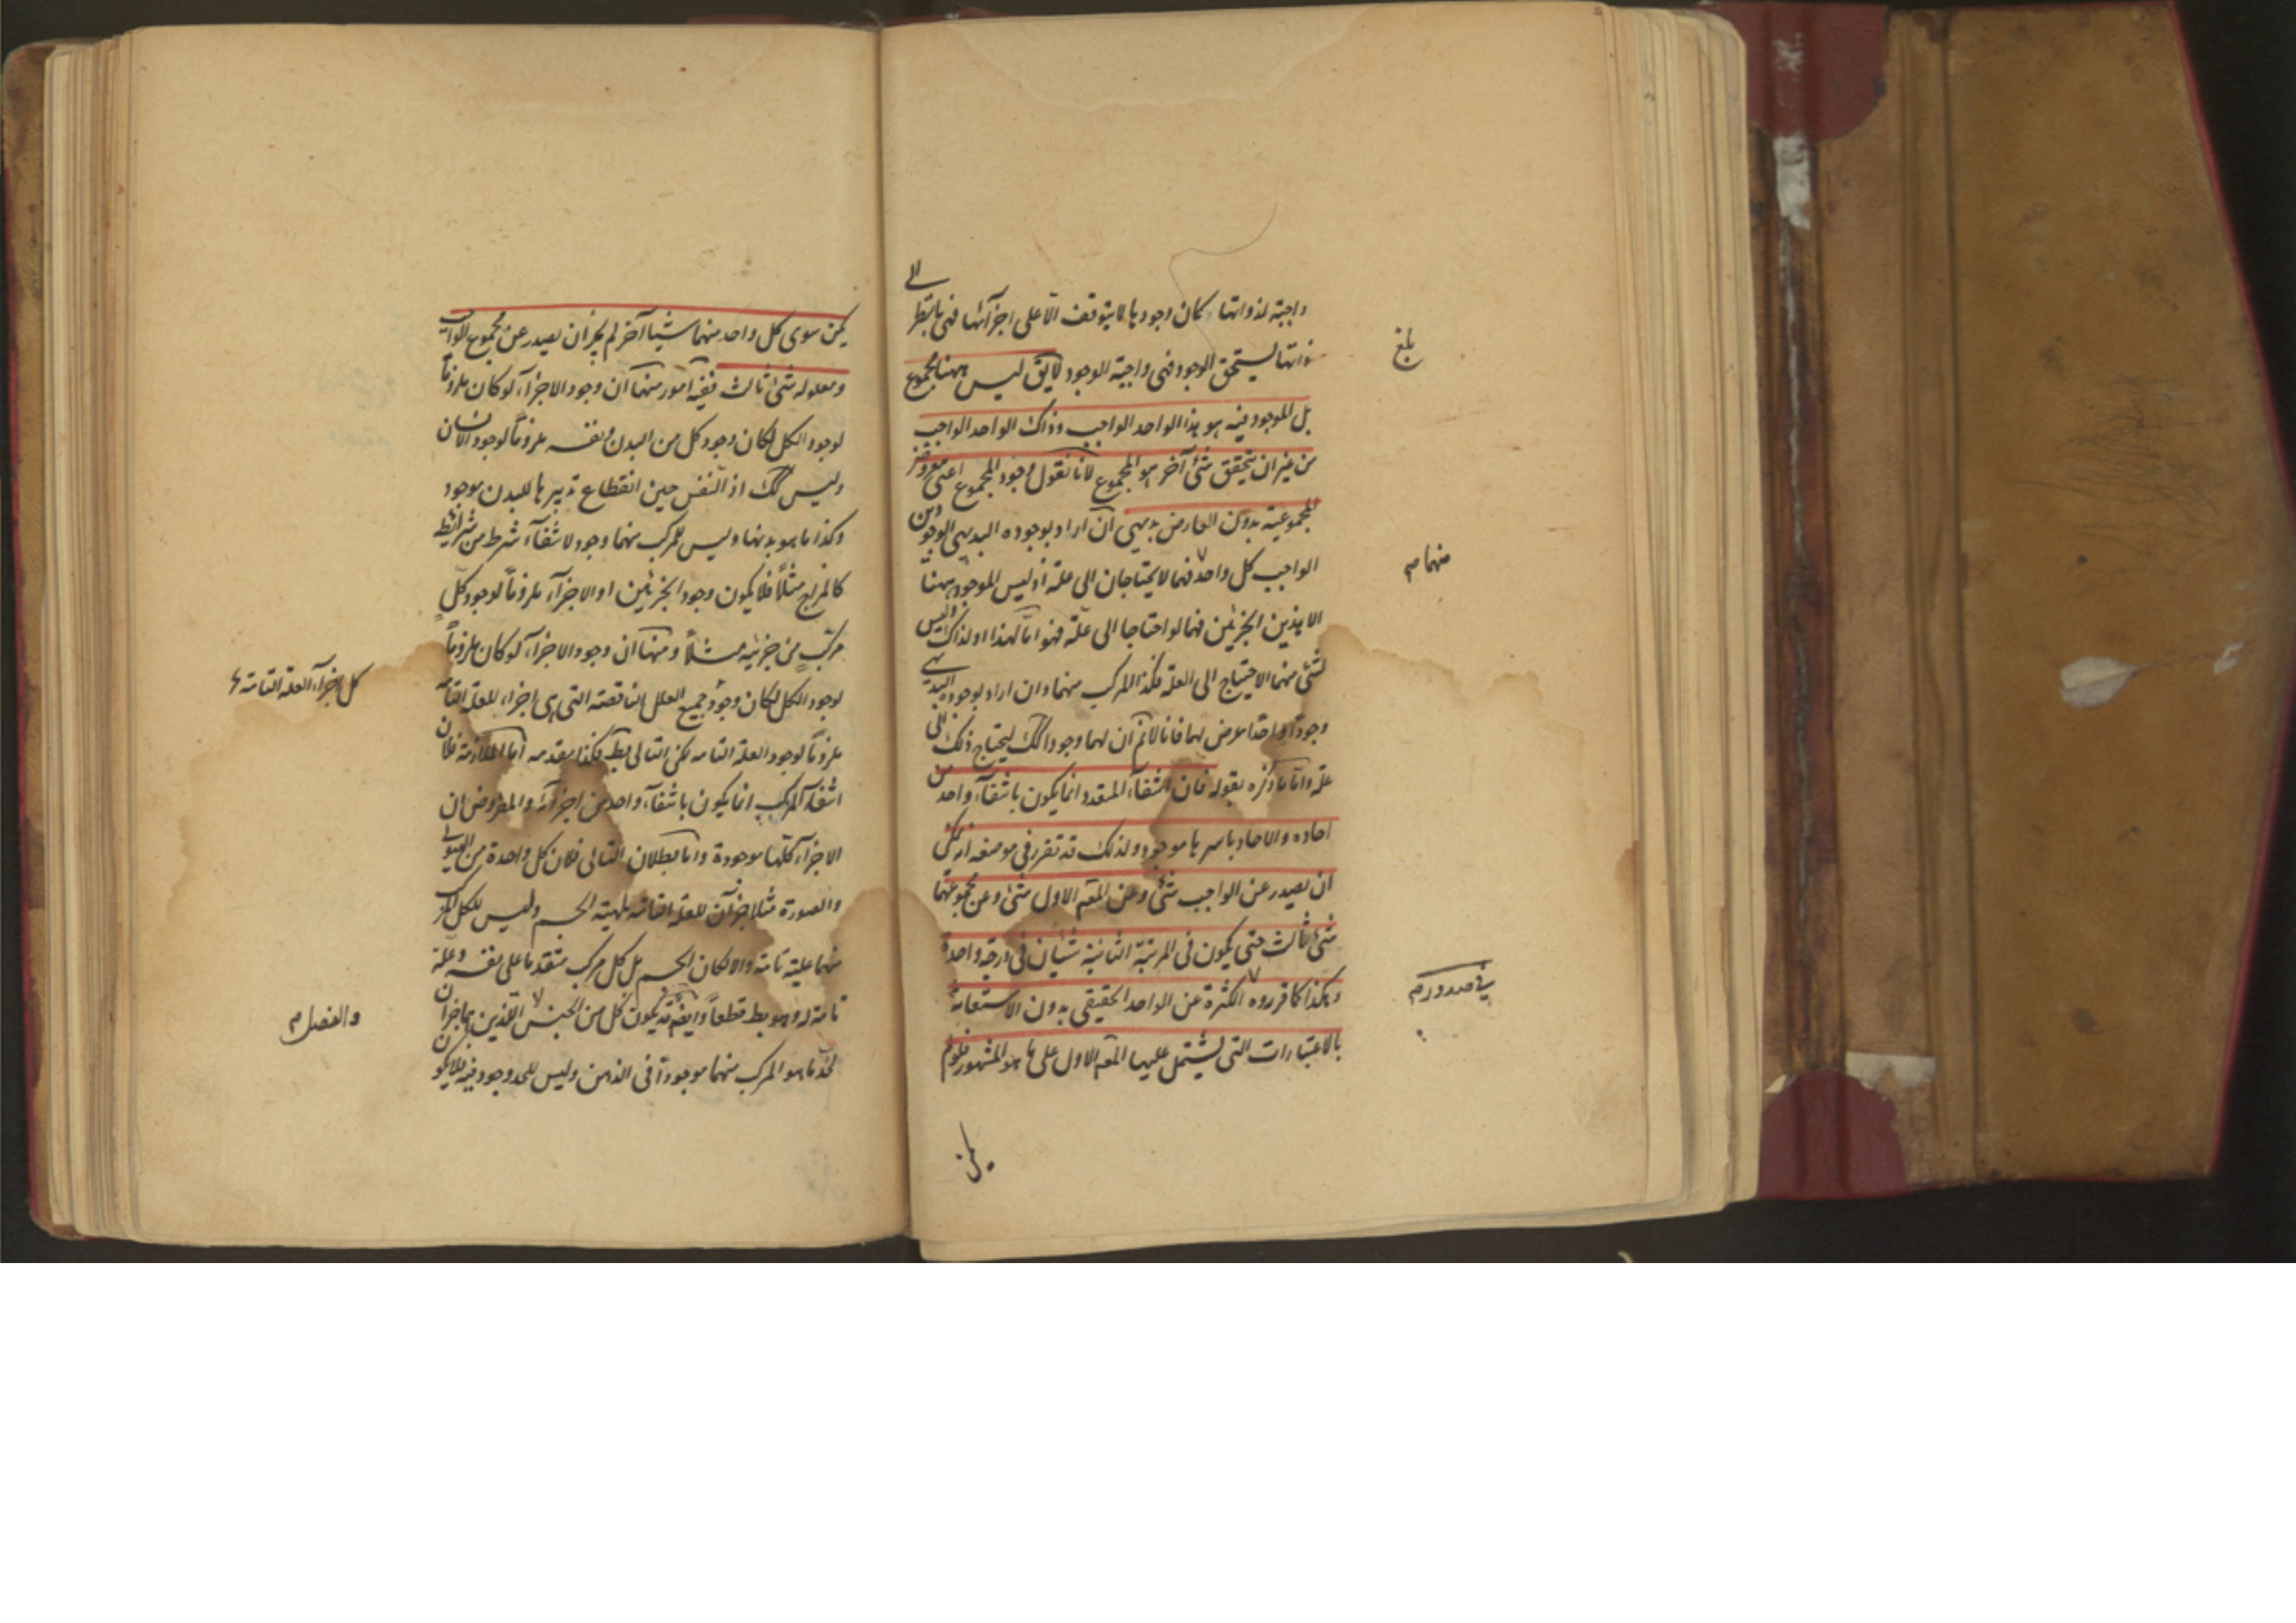 واجبة لذواتها كان وجودها لا يتوقف الا على اجزآئها فهى بالنظر الى
ذاتها يستحق الوجود فهى واجبة الوجود لايق ليس ههنا مجموع
بل الموجود فيه هو هذا الواحد الواجب وذاك الواحد الواجب
من غير ان يتحقق شئ آخر هو المجموع لانا نقول وجود المجموع اعنى معروض
المجموعية بدون العارض بديهى ان اراد بوجوده البديهى الوجود
الواجب كل واحد فهما لا يحتاجان الى علة اذ ليس الموجود ههنا
الا هذين الجزئين فهما لو احتاجا الى علة فهو اما لهذا او لذاك وليس
لشئ منهما الاحتياج الى العلة فكذا المركب منهما وان اراد بوجوده البديهى
وجودا واحدا عرض لهما فانا لانم ان لهما وجودا كك ليحتاج ذلك الى
علة واما ما ذكره بقوله فان انتفآء المتعدد انما يكون بانتفآء واحد من
احاده والاحاد باسرها موجود ولذلك قد تقرر فى موضعه انه يمكن
ان يصدر عن الواجب شئ وعن المعه الاول شئ وعن مجموعهما
شئ ثالث حتى يكون فى المرتبة الثانية شيئان فى درجة واحدة
وهكذا كما قرروه الكثرة عن الواحد الحقيقى بدون الاستعانة
بالاعتبارات التى يشتمل عليها المعه الاول على ما هو المشهور فلو لم
يكن
بلغ
منهما صح
فى صدور م
يكن سوى كل واحد منهما شيئا آخر لم يجز ان يصدر عن مجموع الواجب
ومعلوله شئ ثالث ففيه امور منها ان وجود الاجزآء لو كان ملزوما
لوجود الكل لكان وجود كل من البدن ونفسه ملزوما لوجود الانسان
وليس كك اذ النفس حين انقطاع تدبيرها للبدن موجود
وكذا ما هو بدنها وليس للمركب منهما وجود لانتفآء شرط من شرائط
كالمزاج مثلا فلا يكون وجود الجزئين او الاجزآء ملزوما لوجود كل
مركب من جزئيه مثلا ومنها ان وجود الاجزآء لو كان ملزوما
لوجود الكل لكان وجود جميع العلل الناقصة التى هى اجزاء للعلة التامة
ملزوما لوجود العلة التامه لكن التالى بط فكذا مقدمه اما الملازمة فلان
انتفآء المركب انما يكون بانتفآء واحد من اجزآئه والمفروض ان
الاجزآء كلها موجودة واما بطلان التالى فلان كل واحدة من الهيولى
والصورة مثلا جزآن للعلة التامة لمهية الجسم وليس للكل المركب
منهما علية تامة والا لكان الجسم بل كل مركب متقدما على نفسه وعلة
تامة له وهو بط قطعا وايضا قد يكون كل من الجنس اللذين هما جزآن
لحد ما هو المركب منهما موجودا فى الذهن وليس للحد وجود فيه فلا يكون
كل اجزآء العلة التامة
والفصل م